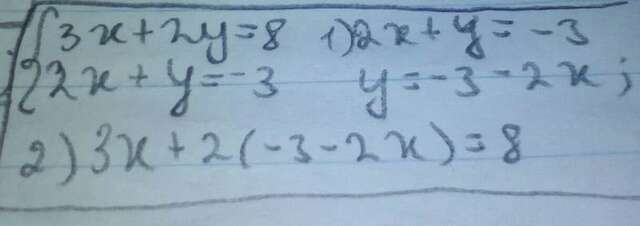 3x+2y=8 1) 2x+y=-3
2x+y=-3 y=-3-2x;
2) 3x+2(-3-2x)=8